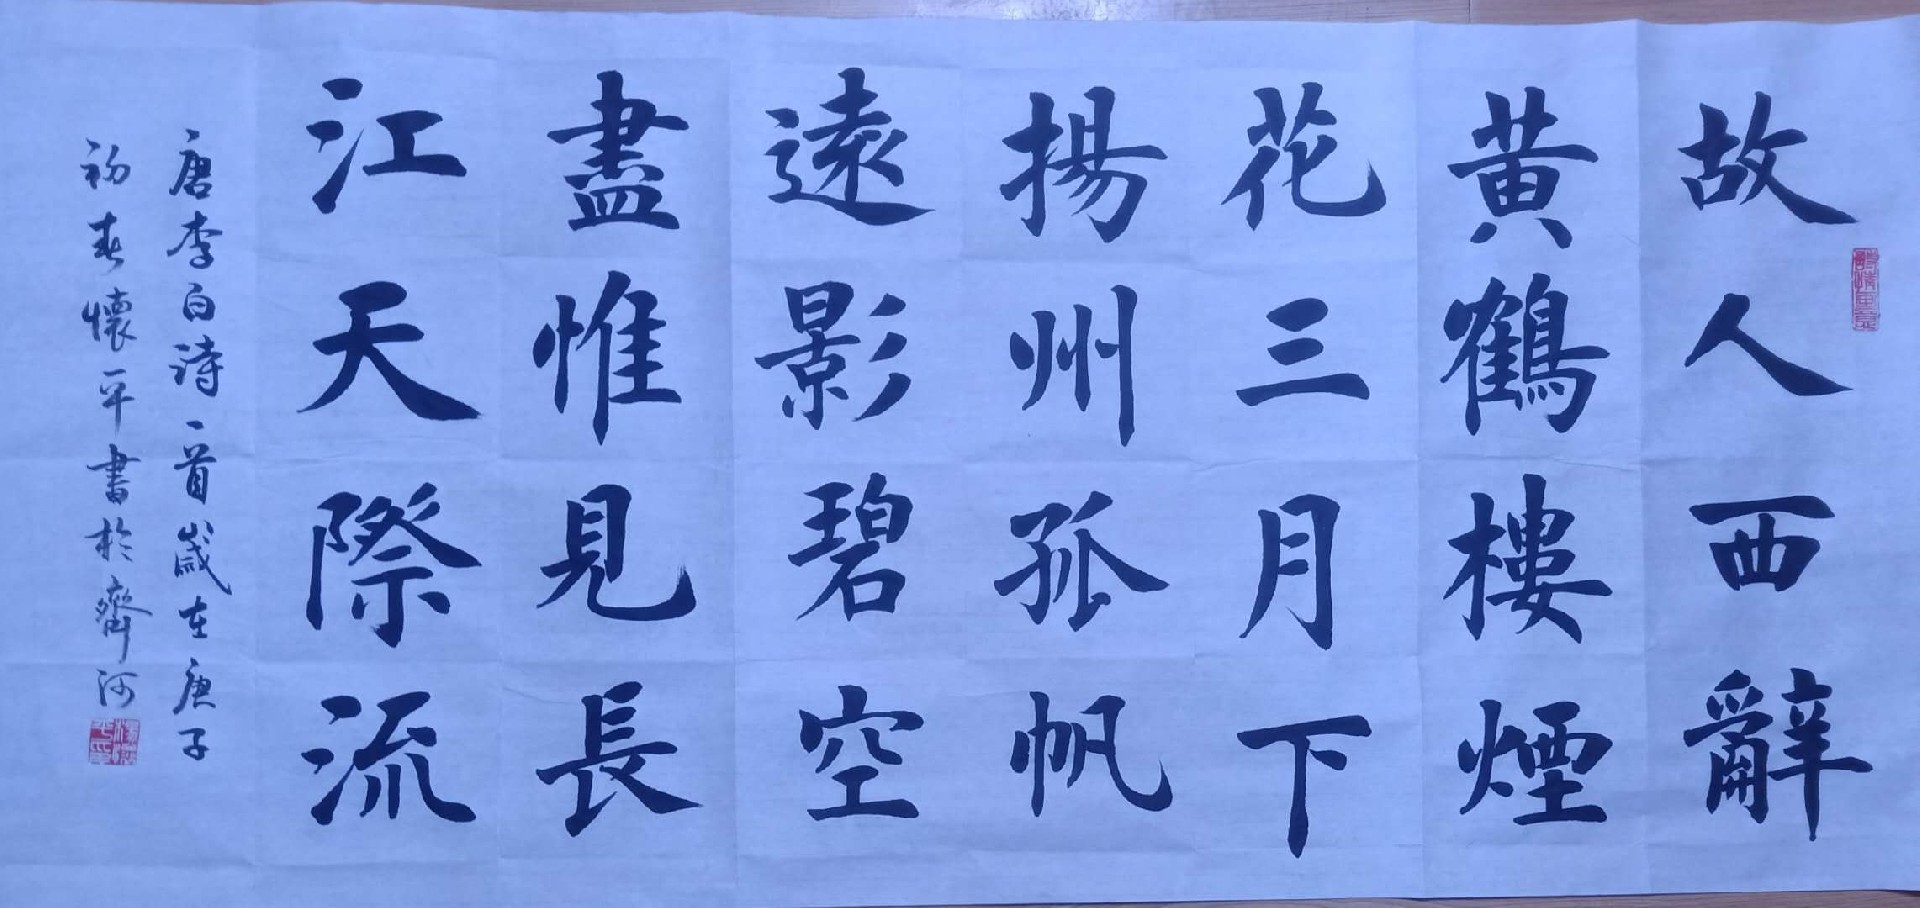 故人西辭
黃鶴樓煙
花三月下
揚州孤帆
遠影碧空
盡惟見長
江天際流
唐李白詩一首歲在庚子
初春懷平書於齊河